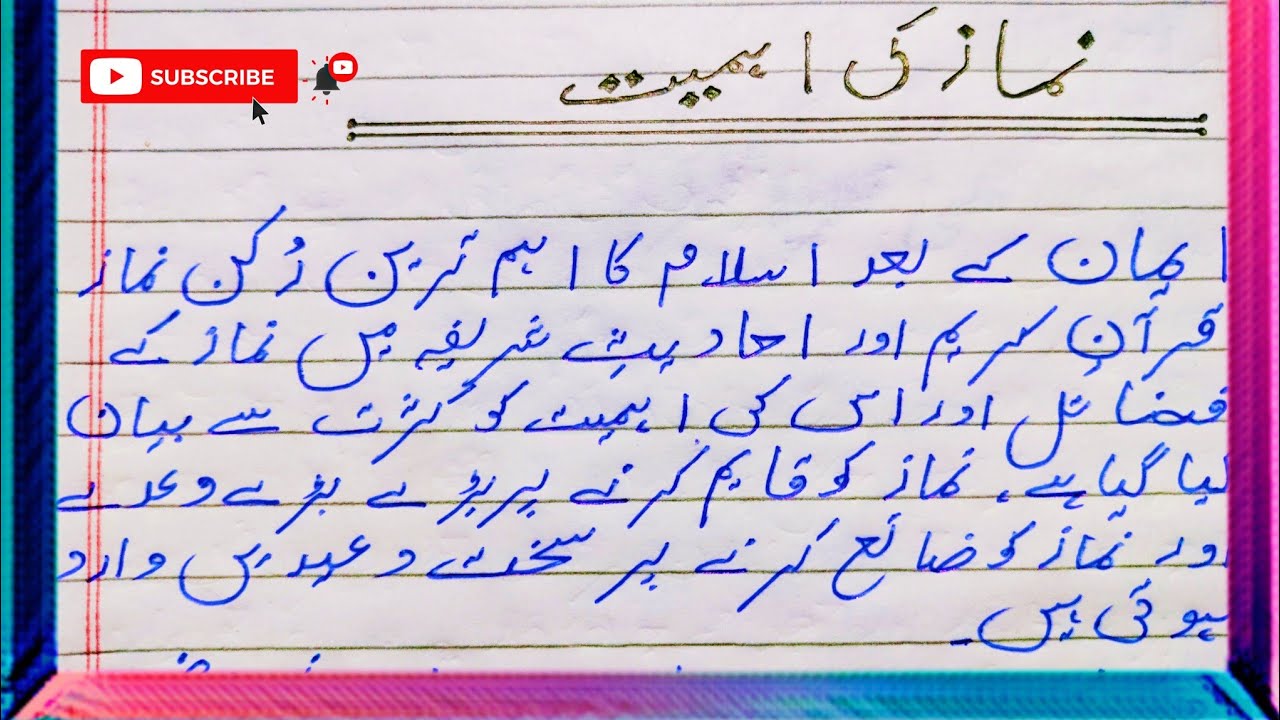 SUBSCRIBE
نماز کی اہمیت
ایمان کے بعد اسلام کا اہم ترین رُکن نماز
قرآنِ کریم اور احادیثِ شریفہ میں نماز کے
فضائل اور اس کی اہمیت کو کثرت سے بیان
کیا گیا ہے۔ نماز کو قایٔم کرنے پر بڑے بڑے وعدے
اور نماز کو ضائع کرنے پر سخت وعیدیں وارد
ہوئی ہیں۔